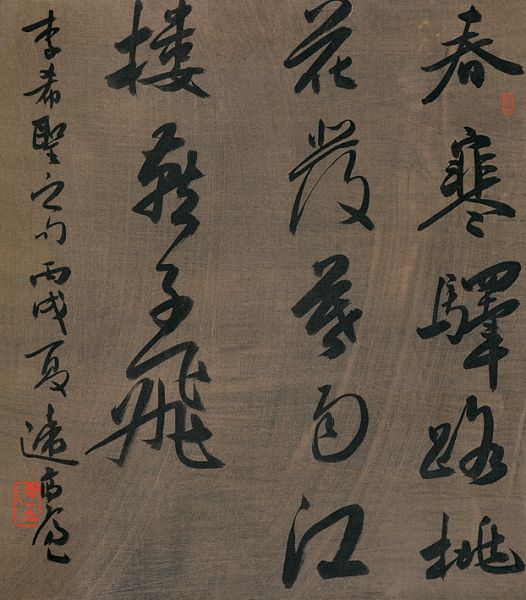 春寒驛路桃
花發暮雨江
樓燕子飛
李希聖之句丙戌夏遠